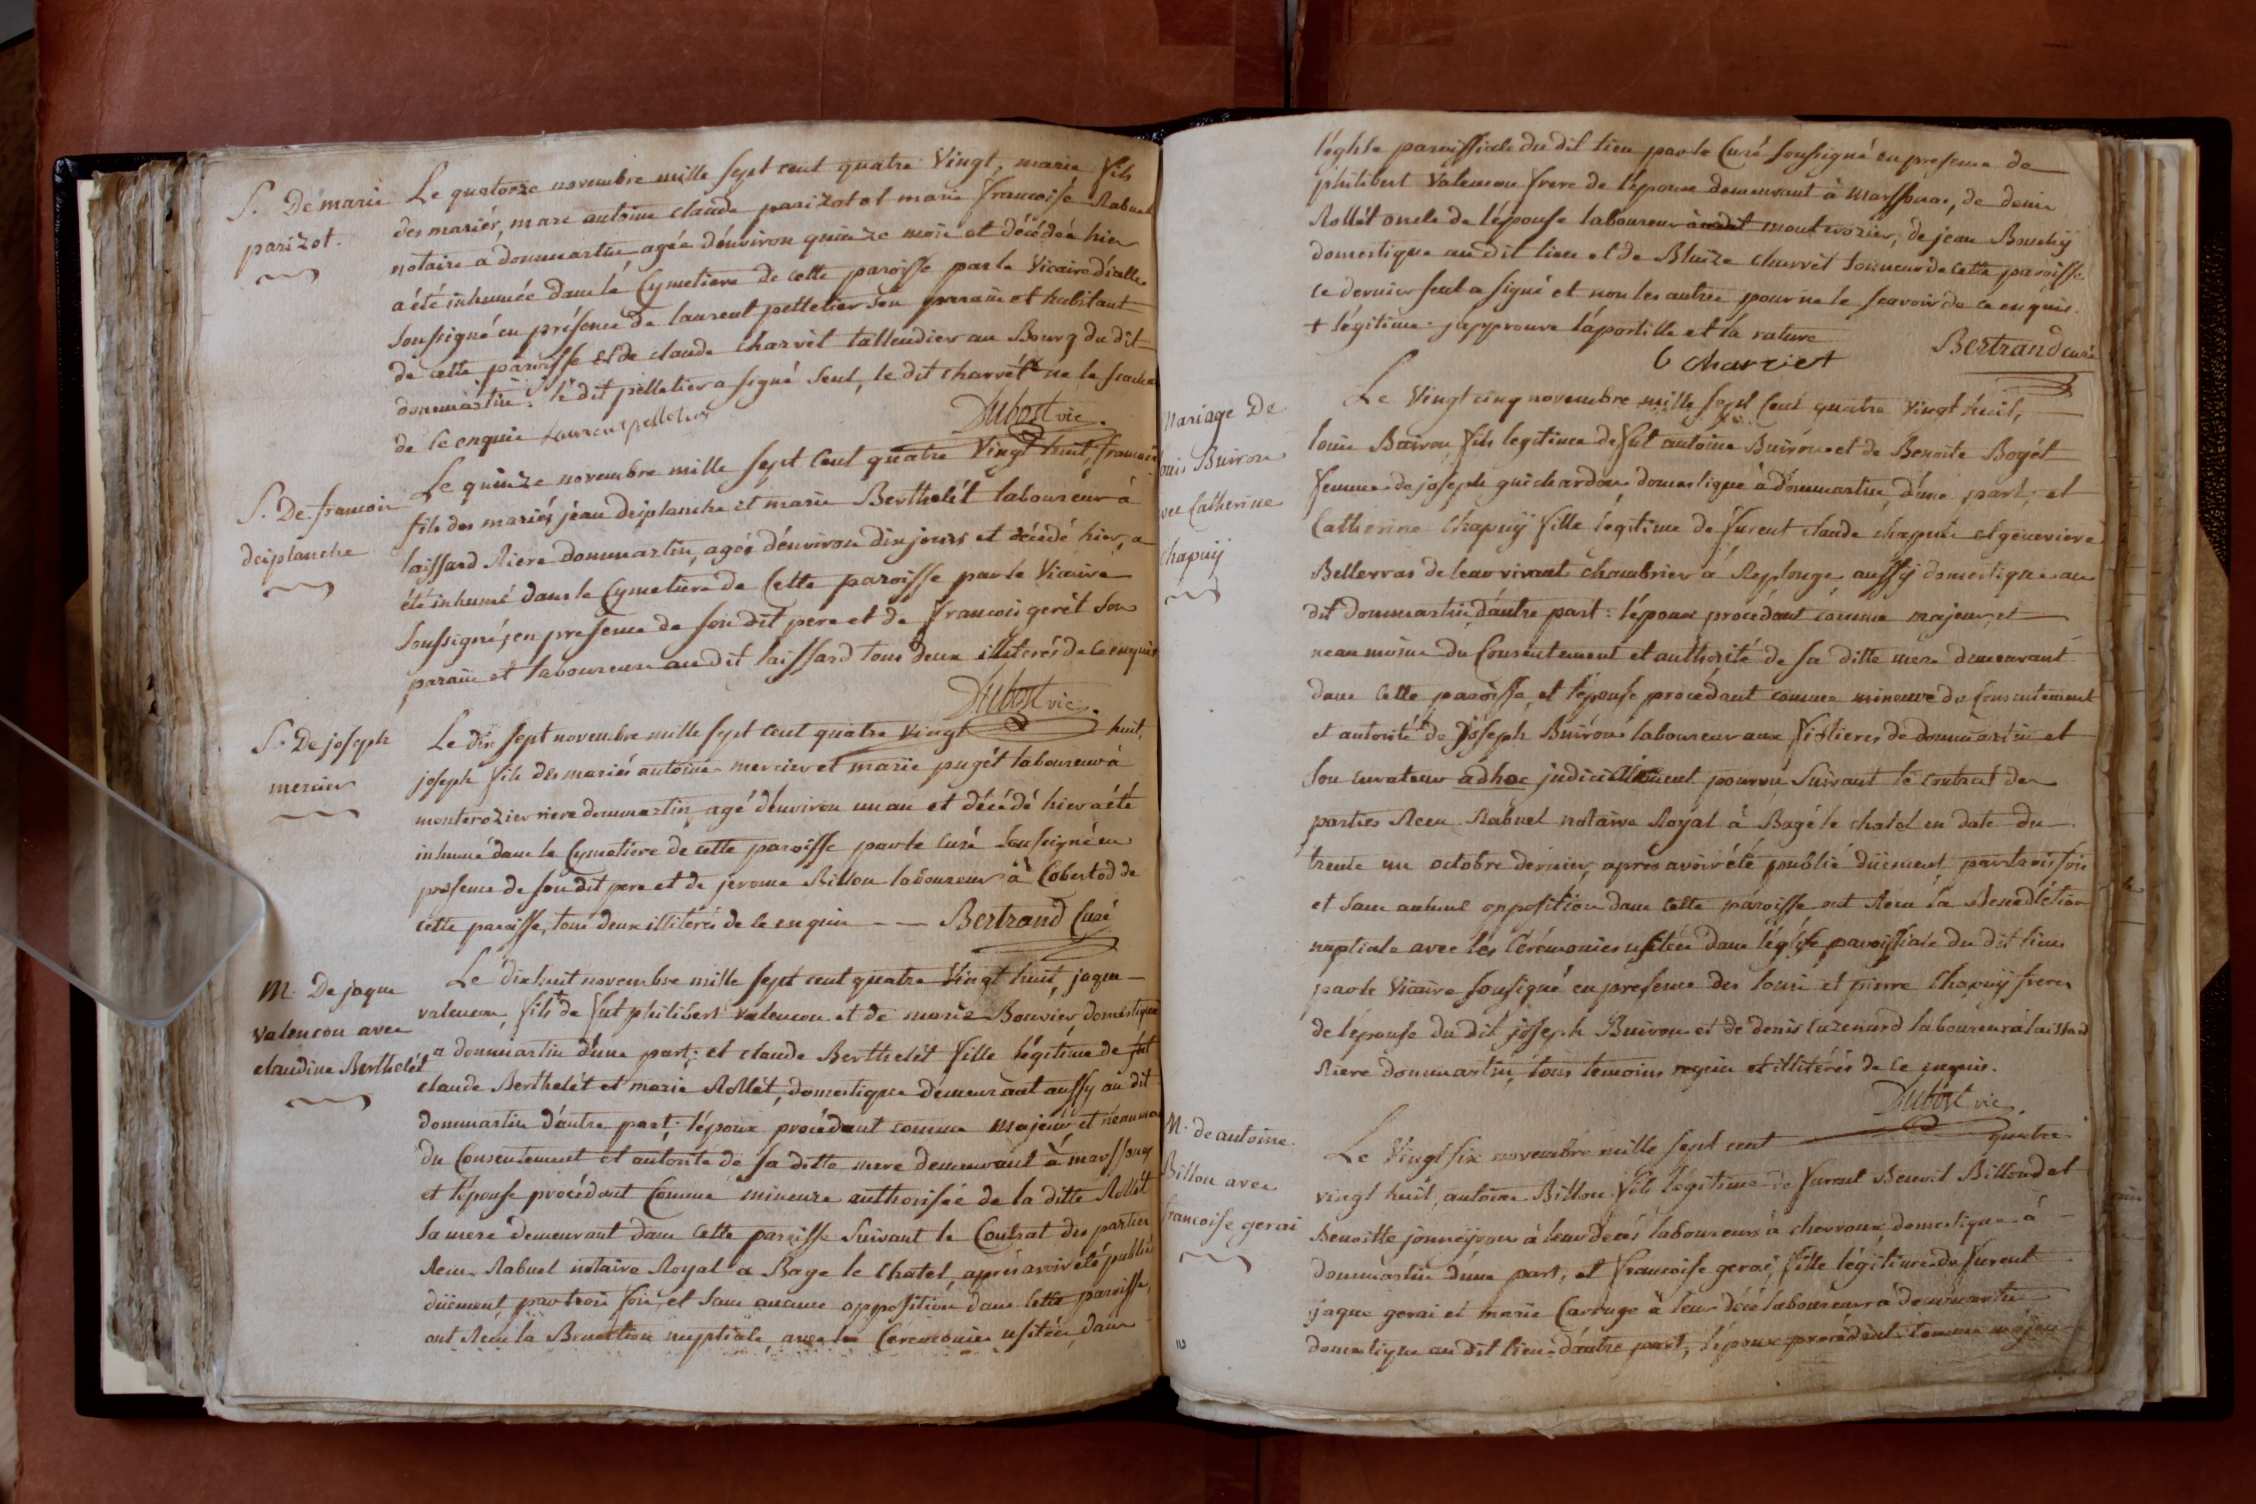 S. De marie
parizot.
Le quatorze novembre mille sept cent quatre Vingt, marie fils
des mariés, marc antoine claude parizot et marie francoise Rabuel
notaire a dommartin agée d'environ quinze mois et décédée hier
a été inhumée dans le Cymetiere de cette paroisse par le Vicaire d'icelle
soussigné en présence de laurent pelletier son parain et habitant
de cette paroisse et de claude charvet taillendier au Bourg du dit
dommartin. le dit pelletier a signé seul, le dit charvét ne le
de ce enquis laurent pelletier
Dubost vic.
S. De francois
desplanche
Le quinze novembre mille sept Cent quatre Vingt huit, francois
fils des mariés jean desplanche et marie Berthelét laboureur à
laissard Riere dommartin, agée d'environ dix jours et décédé hier, a
été inhumé dans le Cymetiere de Cette paroisse par le Vicaire
soussigné, en presence de son dit pere et de francois gerét son
parain et laboureur au dit laissard tous deux illiterés de ce enquis
Dubost vic.
S. De joseph
mercier
Le dix sept novembre mille sept cent quatre Vingt huit,
joseph fils des mariés antoine mercier et marie pugét laboureur à
monterozier riere dommartin, agé d'environ un an et décédé hier a été
inhumé dans le Cymetiere de cette paroisse par le Curé soussigné en
presence de son dit pere et de jerome Billon laboureur à Cobertod de
cette paroisse, tous deux illiterés de ce enquis -- Bertrand Curé
M. De jaque
valencon avec
claudine Berthelét
Le dixhuit novembre mille sept cent quatre Vingt huit, jaque
valencon, fils + de fut philibert valencon et de marie Bouvier domestique
a dommartin d'une part; et claude Berthelét fille légitime de fut
claude Berthelét et marie Rollét, domestique demeurant aussy au dit
dommartin d'autre part; l'époux procédant comme majeur et neanmoins
du Consentement et autorité de sa ditte mere demeurant à marssonas
et l'épouse procédant Comme mineure authorisée de la ditte Rollét
sa mere demeurant dans Cette paroisse suivant le Contrat des parties
Recu Rabuel notaire Royal a Bage le Chatel, aprés avoir été publié
düement par trois fois, et sans aucune opposition dans Cette paroisse,
ont Recu la Benediction nuptiale, avec les Ceremonies usitées, dans
l'eglise paroissiale du dit lieu par le Curé soussigné en presence de
philibert Valencon frere de l'epoux demeurant à Marssonas, de denis
Rollét oncle de l'épouse laboureur audit monterozier, de jean Bouchy
domestique au dit lieu et de Blaize charvét sonneur de cette paroisse
ce dernier seul a signé et non les autres pour ne le scavoir de ce enquis.
+ légitime. japprouve l'apostille et la rature
C charvet
Bertrand curé
Mariage De
louis Buiron
avec Catherine
Chapuÿ
Le Vingt cinq novembre mille sept Cent quatre Vingt huit,
louis Buiron, fils legitime de fut antoine Buiron et de Benoite Bogét
femme de joseph guichardon, domestique à Dommartin, d'une part; et
Catherine Chapuÿ fille legitime de furent claude chapuis et genevieve
Bellevras de leur vivant chambrier à Replonge, aussÿ domestique au
dit dommartin, d'autre part: l'époux procédant comme majeur, et
neanmoins du Consentement et authorité de sa ditte mere demeurant
dans Cette paroisse, et l'épouse procédant comme mineure du Consentement
et autorité de joseph Buiron laboureur aux fiolieres de dommartin et
son curateur adhoc judiciellement pourvu suivant le contrat des
parties Recu Rabuel notaire Royal à Bagé le chatel en date du
trente un octobre dernier, aprés avoir été publié düement par trois fois
et sans aucune opposition dans Cette paroisse ont Recu la Benediction
nuptiale avec les Cérémonies usitées dans l'église paroissiale du dit lieu
par le Vicaire sousigné en presence des louis et pierre Chapuÿ freres
de l'épouse du dit joseph Buiron et de denis Cuzenard laboureur à laissard
Riere dommartin, tous temoins requis et illitérés de ce enquis.
Dubost vic.
M. de antoine
Billon avec
francoise gerai
Le Vingt six novembre mille sept cent quatre
vingt huit, antoine Billon fils légitime de furent Benoit Billoud et
Benoitte jonneÿron à leur decés laboureurs à chevroux, domestique à
dommartin d'une part, et francoise gerai, fille légitime de furent
jaque gerai et marie Carruge à leur décé laboureurs à dommartin
domestique au dit lieu d'autre part, l'époux procédant comme majeur